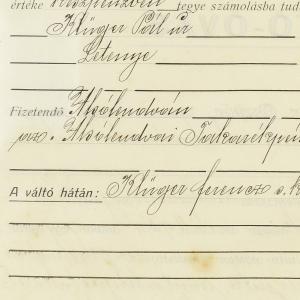 értéke készpénzben tegye számolásba tud
Klüger Pál úr
Letenye
Fizetendő Alsólendván
az Alsólendvai Takarékpén
A váltó hátán: Klüger ferencz s. k